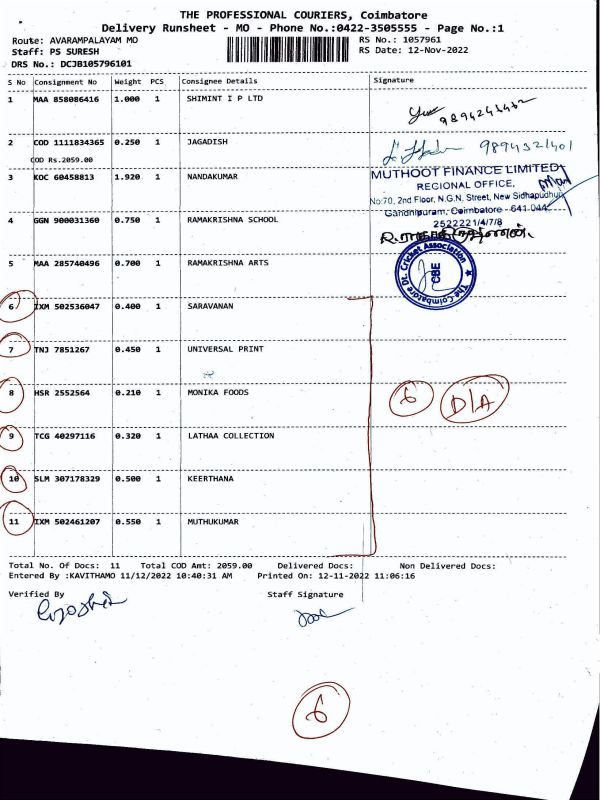 THE PROFESSIONAL COURIERS, Coimbatore
Delivery Runsheet - MO - Phone No.:0422-3505555 - Page No.:1
Route: AVARAMPALAYAM MO RS No.: 1057961
Staff: PS SURESH RS Date: 12-Nov-2022
DRS No.: DCJB105796101
S No Consignment No Weight PCS Consignee Details Signature
1 MAA 858086416 1.000 1 SHIMINT I P LTD
9894243432
2 COD 1111834365 0.250 1 JAGADISH 9894321401
COD Rs.2059.00
3 KOC 60458813 1.920 1 NANDAKUMAR
MUTHOOT FINANCE LIMITED
REGIONAL OFFICE,
No:70, 2nd Floor, N.G.N, Street, New Sidhapudhur,
Gandhipuram, Coimbatore - 641 044
2522221/4/7/8
4 GGN 900031360 0.750 1 RAMAKRISHNA SCHOOL
5 MAA 285740496 0.700 1 RAMAKRISHNA ARTS
The Coimbatore Dt. Cricket Association
CBE
6 IXM 502536047 0.400 1 SARAVANAN
7 TNJ 7851267 0.450 1 UNIVERSAL PRINT
8 HSR 2552564 0.210 1 MONIKA FOODS
6 D/A
9 TCG 40297116 0.320 1 LATHAA COLLECTION
10 SLM 307178329 0.500 1 KEERTHANA
11 IXM 502461207 0.550 1 MUTHUKUMAR
Total No. Of Docs: 11 Total COD Amt: 2059.00 Delivered Docs: Non Delivered Docs:
Entered By :KAVITHAMO 11/12/2022 10:40:31 AM Printed On: 12-11-2022 11:06:16
Verified By Staff Signature
6